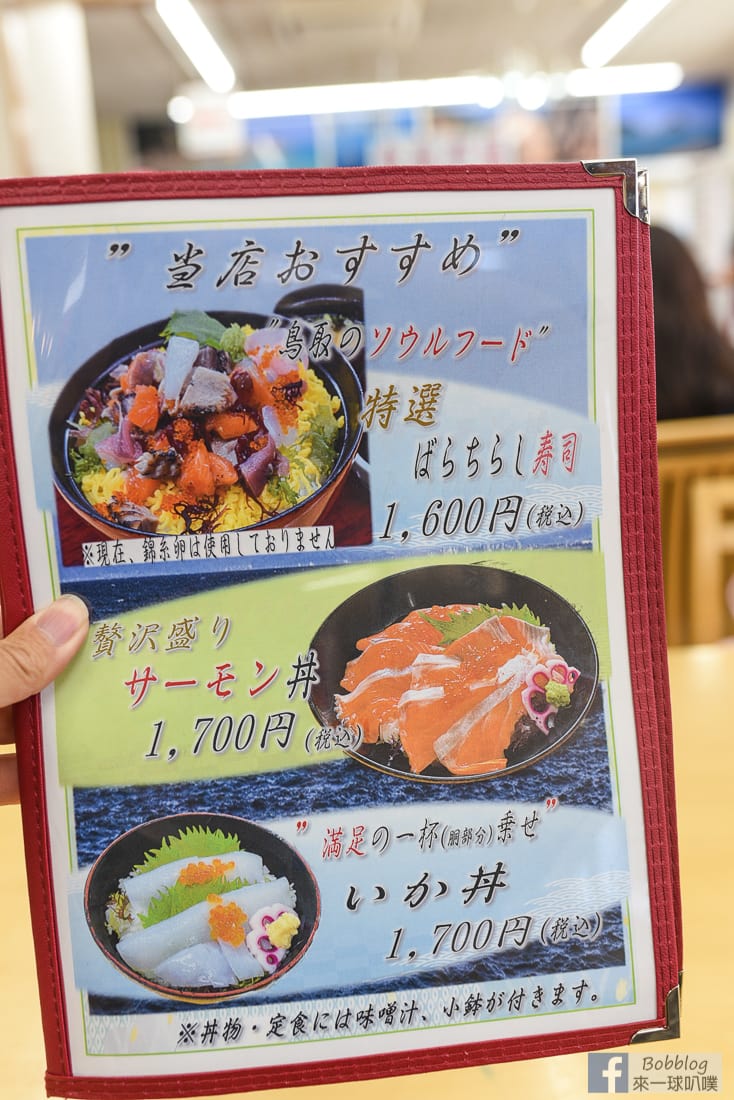 ”当店おすすめ”
“鳥取のソウルフード”
特選
ばらちらし寿司
1,600円(税込)
※現在、錦糸卵は使用しておりません
贅沢盛り
サーモン丼
1,700円(税込)
”満足の一杯(胴部分)乗せ”
いか丼
1,700円(税込)
※丼物・定食には味噌汁、小鉢が付きます。
f Bobblog
來一球叭噗